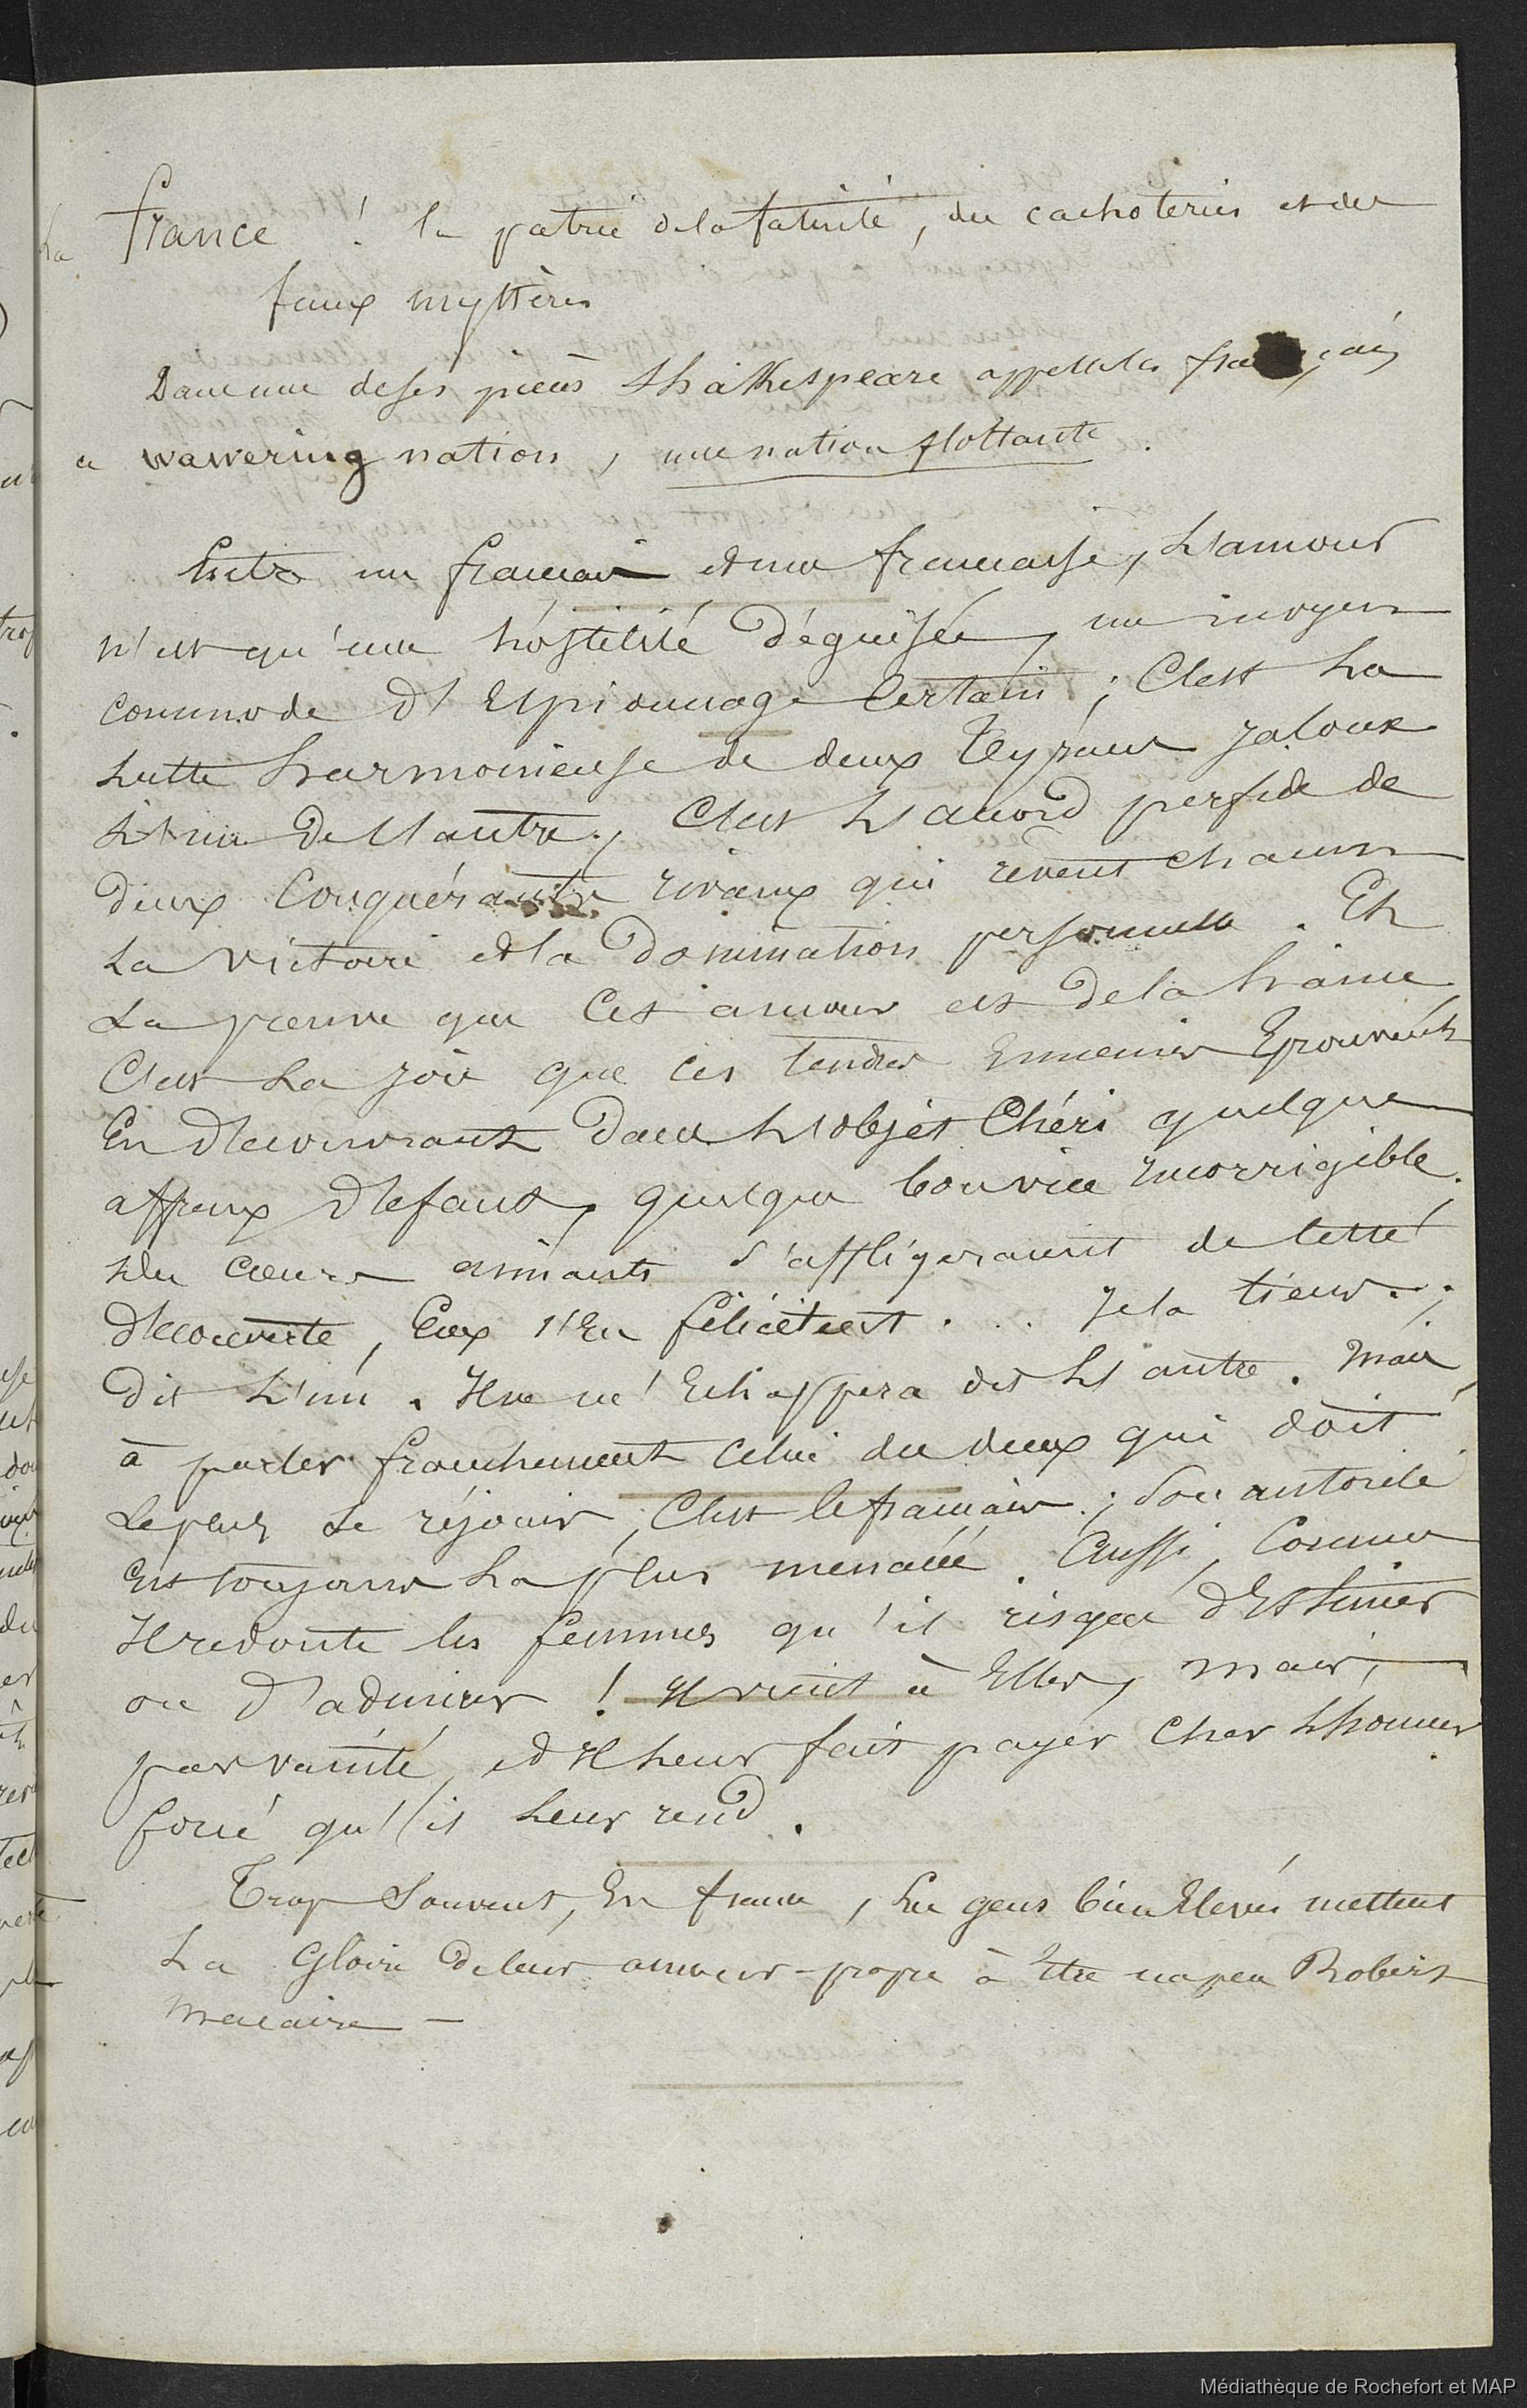 La France ! la patrie de la fatuité, des cachoteries et des
faux mystères
Dans une de ses pièces Shakespeare appelle les français
a wawering nation, une nation flottante.
Entre un français et une francaise, L'amour
n'est qu'une hostilité déguisée, un moyen
commode d'Espionnage Certain ; C'est La
Lutte harmonieuse de deux Tyrans Jaloux
L'un de l'autre, C'est L'accord perfide de
deux Conquérants rivaux qui rêvent chacun
La victoire et la Domination personnelle. Et
La preuve que Cet amour est de la haine
C'est La Joie que Ces tendres Ennemis Eprouvent
En découvrant dans L'objet Chéri quelque
affreux défaut, quelque bon vice Incorrigible.
Des Cœurs aimants s'affligeraient de cette
découverte, Eux s'En félicitent . . . Je la tiens . ;
dit L'un . Il ne m'Echappera dit L'autre . Mais,
à parler franchement Celui des deux qui doit
Le plus se réjouir, C'est le français . ; Son autorité
Est toujours La plus menacée. Aussi, Comme
Il redoute les femmes qu'il risque d'Estimer
ou d'admirer ! Il vient à Elles, mais,
par vanité, et Il Leur fait payer Cher L'honneur
forcé qu'il Leur rend.
Trop Souvent, En france, Les gens bien Elevés mettent
La Gloire de leur amour-propre à Etre un peu Robert
Macaire —
Médiathèque de Rochefort et MAP